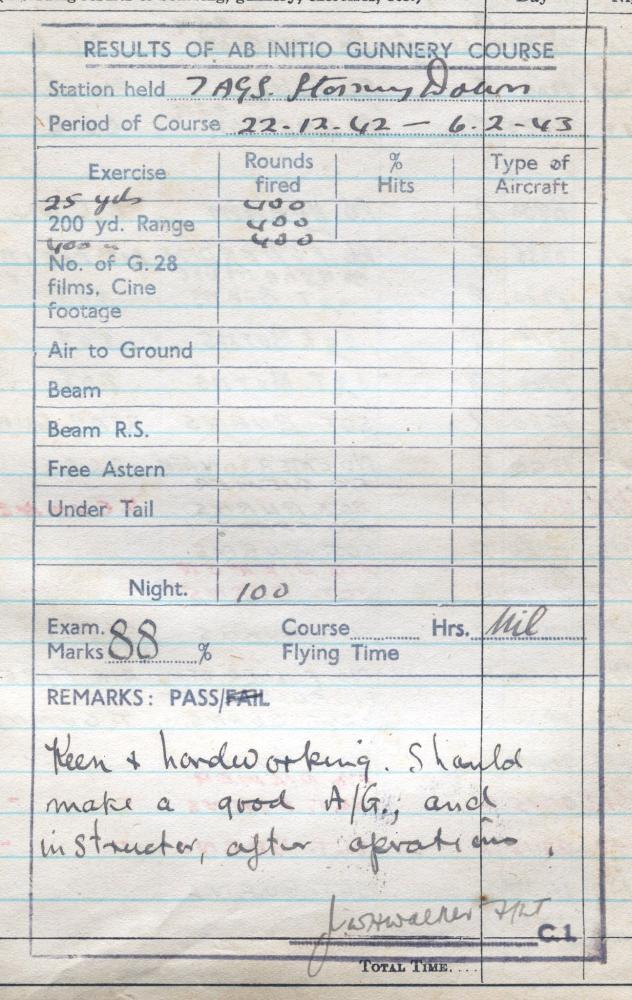 Day
RESULTS OF AB INITIO GUNNERY COURSE
Station held 7 AGS. Stormy Down
Period of Course 22-12-42 — 6.2-43
Exercise Rounds fired % Hits Type of Aircraft
25 yds 400
200 yd. Range 400
400 " 400
No. of G.28
films, Cine
footage
Air to Ground
Beam
Beam R.S.
Free Astern
Under Tail
Night. 100
Exam. Course Hrs. Nil
Marks 88 % Flying Time
REMARKS: PASS/FAIL
Keen & hardworking. Should
make a good A/G., and
instructor, after oprations.
Walker F/Lt
C.I.
TOTAL TIME....